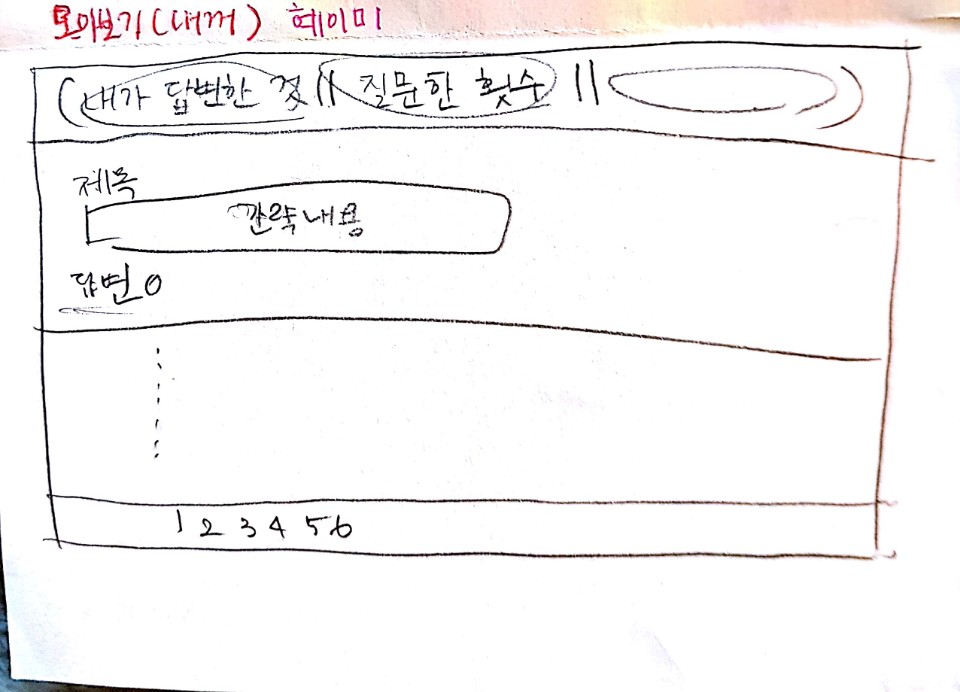 모아보기(내꺼) 헤이미
(내가 답변한 것 || 질문한 횟수 || )
제목
간략내용
답변 0
1 2 3 4 5 6